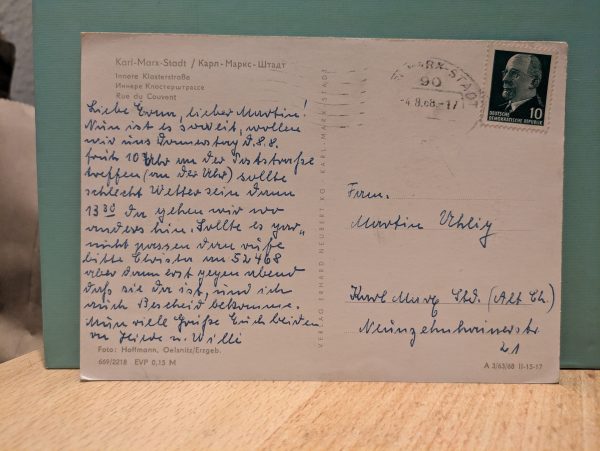 Karl-Marx-Stadt / Карл-Маркс-Штадт
Innere Klosterstraße
Иннере Клостерштрассе
Rue du Couvent
Liebe Erna, lieber Martin!
Nun ist es soweit, wollen
wir uns Donnerstag d. 8.8.
früh 10 Uhr an der Poststraße
treffen (an der Uhr) sollte
schlecht Wetter sein dann
13 30 da gehen wir wo
anders hin. Sollte es gar
nicht passen dann rufe
bitte Christa an 52468
aber dann erst gegen abend
daß sie da ist, und ich
auch Bescheid bekomme.
Nun viele Grüße Euch beiden
von u. Willi
Foto: Hoffmann, Oelsnitz/Erzgeb.
669/2218 EVP 0,15 M
VERLAG ERHARD NEUBERT KG. KARL-MARX-STADT
MARX-STADT
90
-4.8.68.-17
10
DEUTSCHE
DEMOKRATISCHE REPUBLIK
Fam.
Martin Uhlig
Karl Marx Std. (Alt Ch.)
Neunzehnhainerstr
21
A 3/63/68 II-15-17